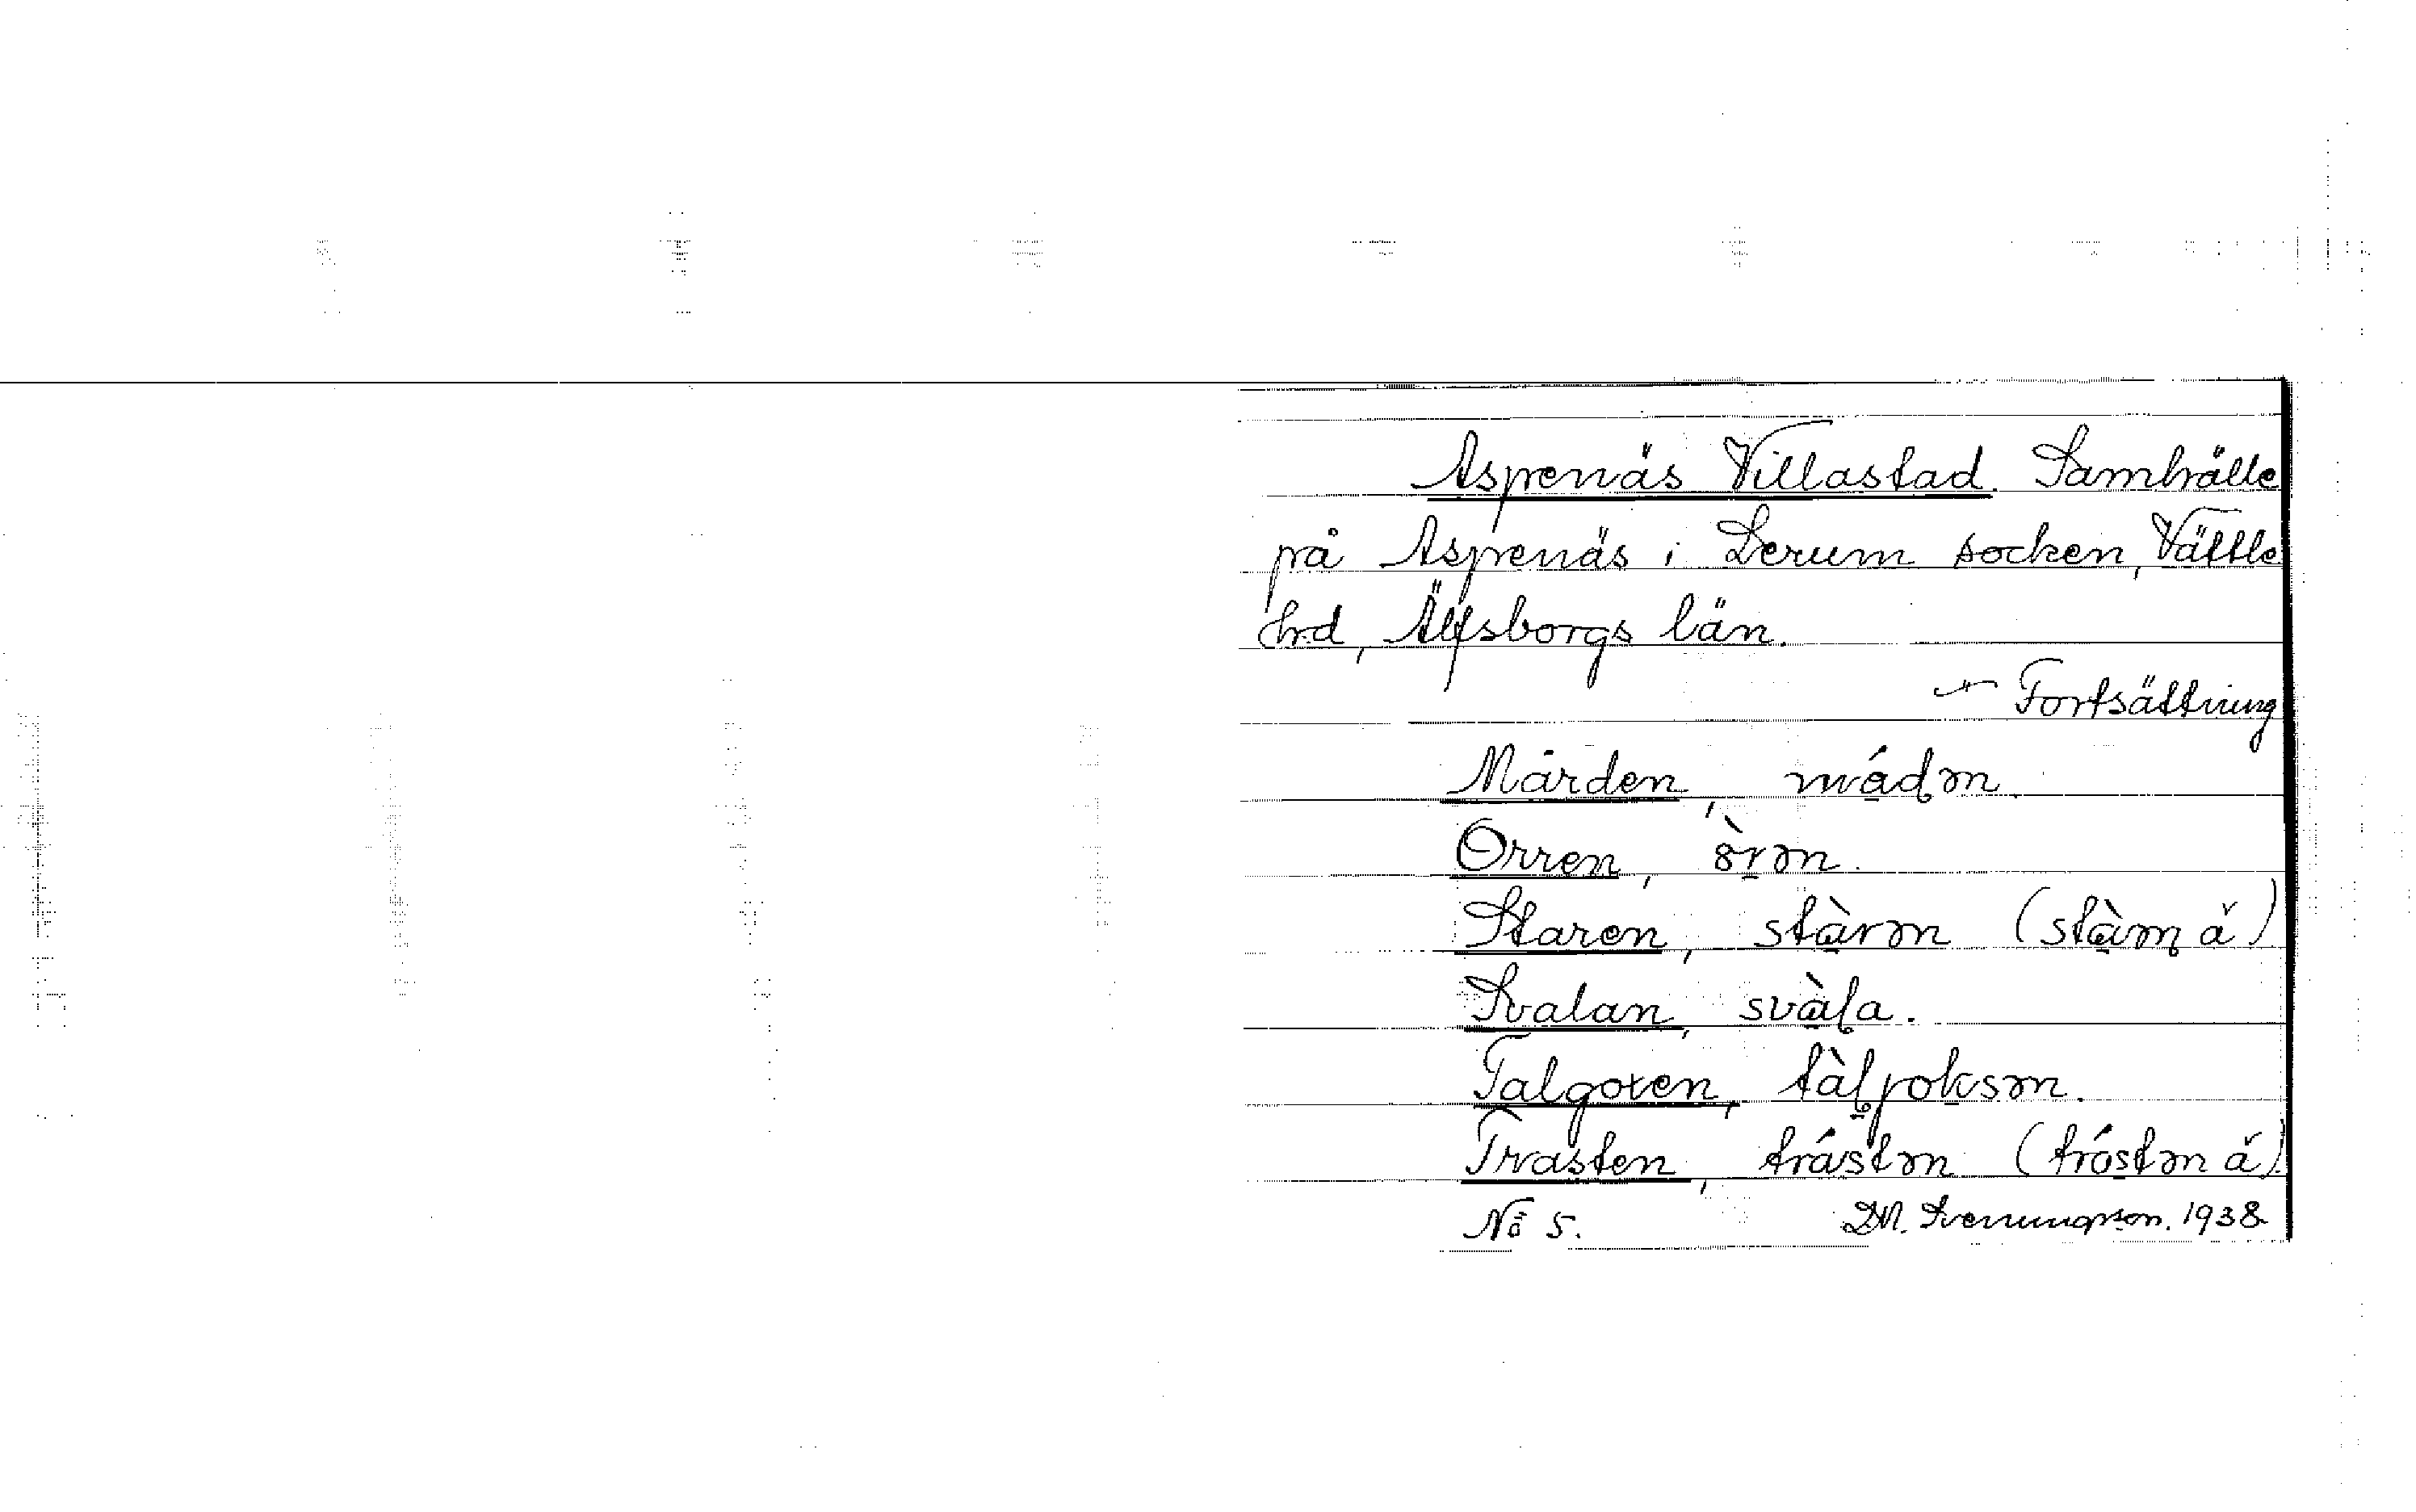 Aspenäs Villastad. Samhälle
på Aspenäs i Lerum socken, Vättle
hrd, Älfsborgs län.
Fortsättning
Mården, mǻdən.
Orren, òrən.
Staren, stàrən (stàn̥ ä)
Svalan, svàla.
Talgoxen, tàljoksən.
Trasten, trástən (tróstən ä)
No 5. D.N. Svenningson. 1938